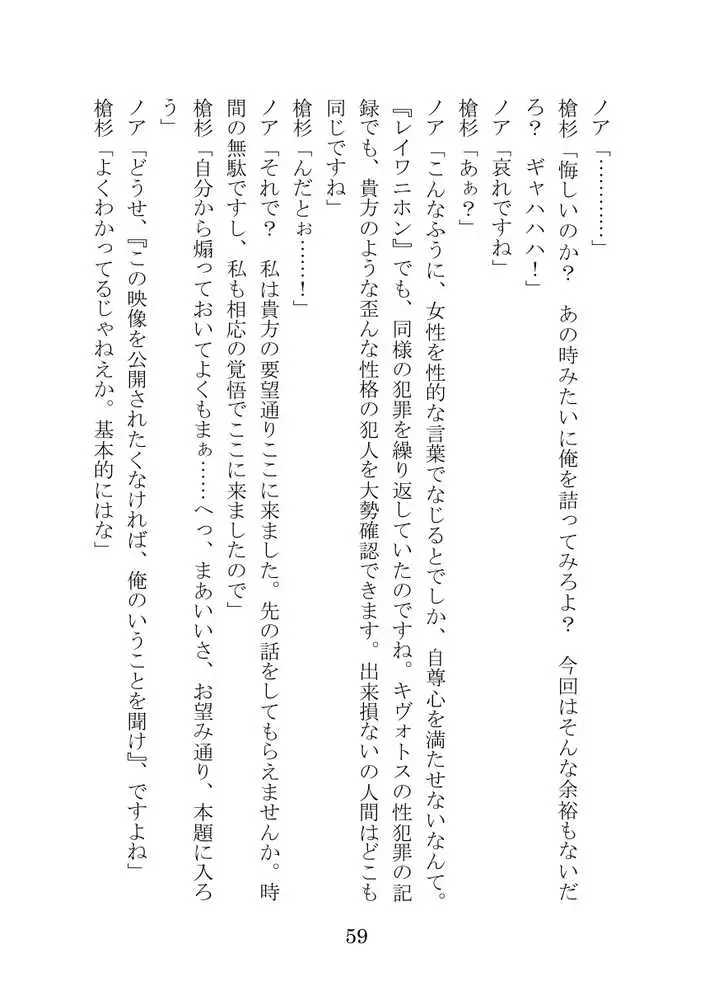 ノア「…………」
槍杉「悔しいのか？　あの時みたいに俺を詰ってみろよ？　今回はそんな余裕もないだ
ろ？　ギャハハハ！」
ノア「哀れですね」
槍杉「あぁ？」
ノア「こんなふうに、女性を性的な言葉でなじるとでしか、自尊心を満たせないなんて。
『レイワニホン』でも、同様の犯罪を繰り返していたのですね。キヴォトスの性犯罪の記
録でも、貴方のような歪んな性格の犯人を大勢確認できます。出来損ないの人間はどこも
同じですね」
槍杉「んだとぉ……！」
ノア「それで？　私は貴方の要望通りここに来ました。先の話をしてもらえませんか。時
間の無駄ですし、私も相応の覚悟でここに来ましたので」
槍杉「自分から煽っておいてよくもまぁ……へっ、まあいいさ、お望み通り、本題に入ろ
う」
ノア「どうせ、『この映像を公開されたくなければ、俺のいうことを聞け』、ですよね」
槍杉「よくわかってるじゃねえか。基本的にはな」
59